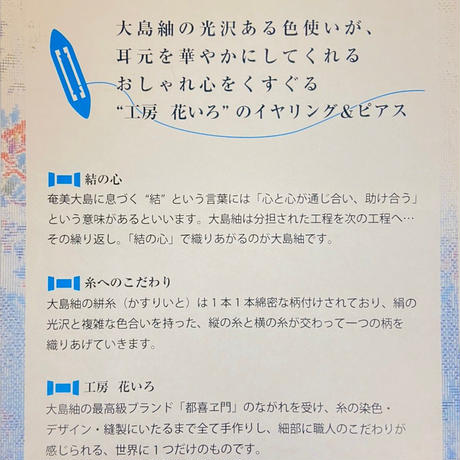 大島紬の光沢ある色使いが、
耳元を華やかにしてくれる
おしゃれ心をくすぐる
“工房 花いろ”のイヤリング&ピアス
結の心
奄美大島に息づく“結”という言葉には「心と心が通じ合い、助け合う」
という意味があるといいます。大島紬は分担された工程を次の工程へ…
その繰り返し。「結の心」で織りあがるのが大島紬です。
糸へのこだわり
大島紬の絣糸（かすりいと）は1本1本綿密な柄付けされており、絹の
光沢と複雑な色合いを持った、縦の糸と横の糸が交わって一つの柄を
織りあげていきます。
工房 花いろ
大島紬の最高級ブランド「都喜ヱ門」のながれを受け、糸の染色・
デザイン・縫製にいたるまで全て手作りし、細部に職人のこだわりが
感じられる、世界に1つだけのものです。